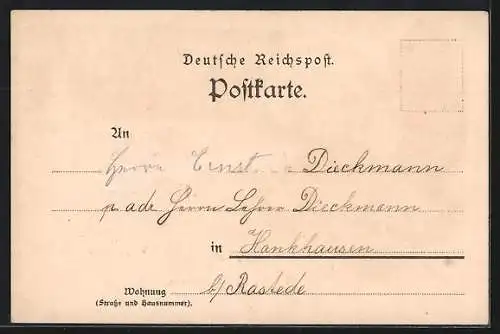 Deutsche Reichspost.
Postkarte.
An
Herrn Ernst Dieckmann
p. ade Herrn Lehrer Dieckmann
in Hankhausen
Wohnung b/ Rastede
(Straße und Hausnummer).